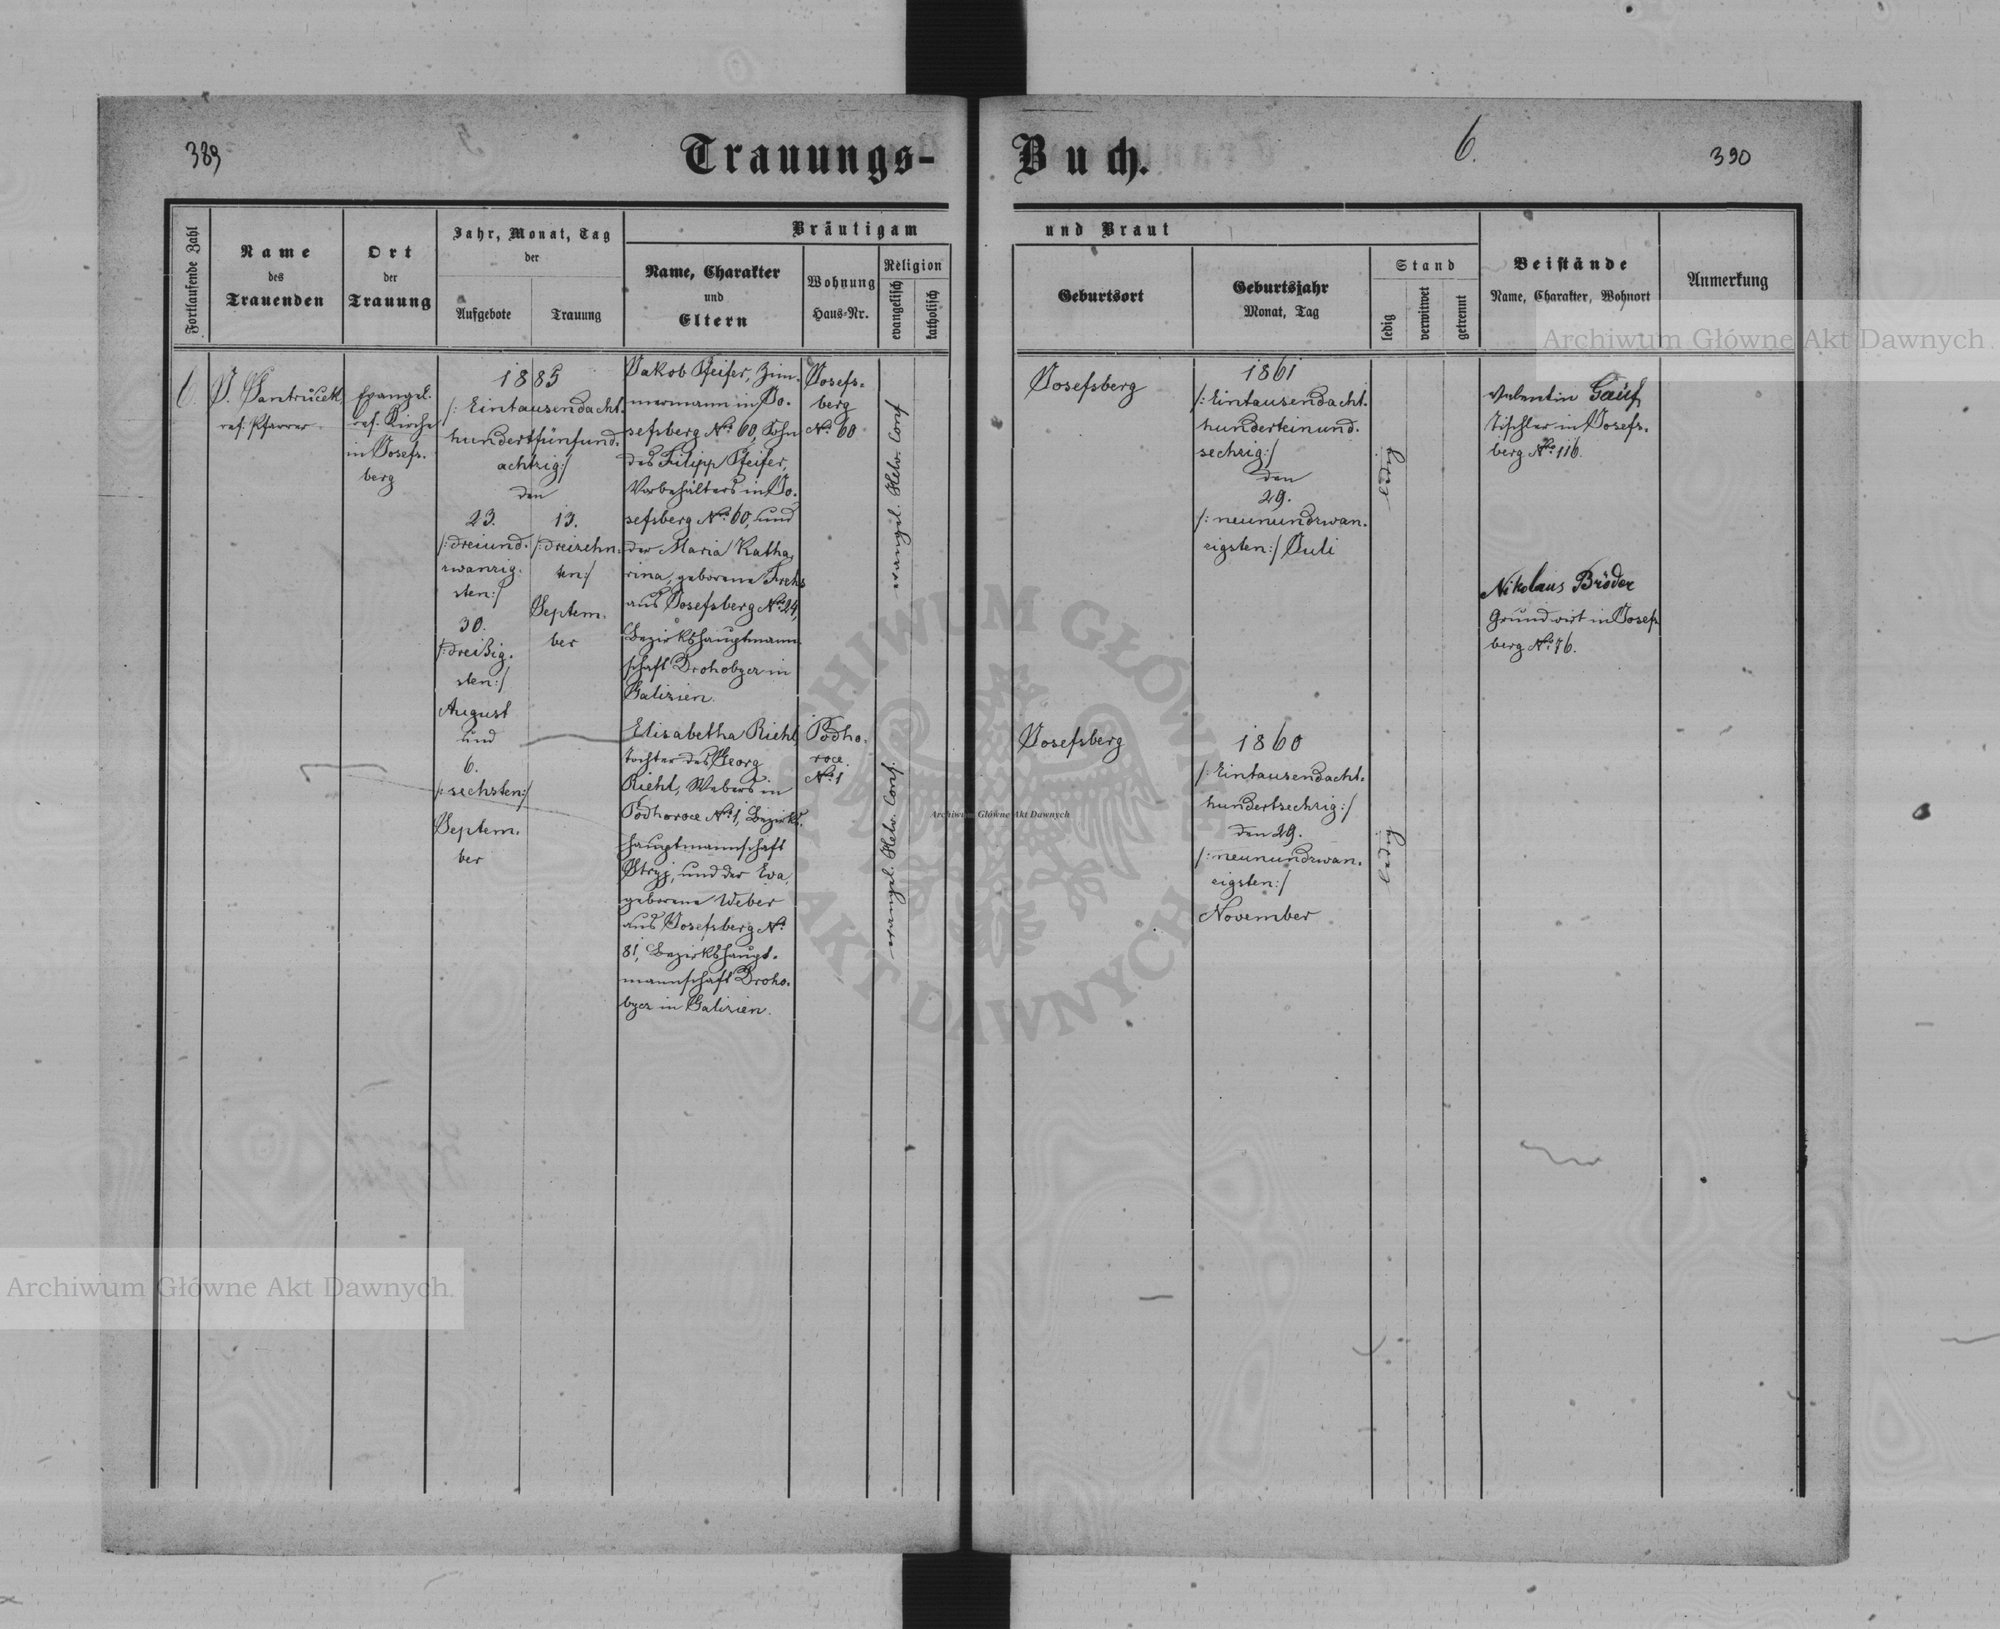 389
Trauungs-
Buch.
6.
390
Fortlaufende Zahl
Name
des
Trauenden
Ort
der
Trauung
Jahr, Monat, Tag
der
Aufgebote
Trauung
Bräutigam
Name, Charakter
und
Eltern
Wohnung
Haus-Nr.
Religion
evangelisch
katholisch
und Braut
Geburtsort
Geburtsjahr
Monat, Tag
Stand
ledig
verwitwet
getrennt
Beistände
Name, Charakter, Wohnort
Anmerkung
6.
J. Jantrůček
ref. Pfarrer
Evangel.
ref. Kirche
in Josefs-
berg
1885
/: Eintausendacht-
hundertfünfund-
achtzig :/
den
23.
/: dreiund-
zwanzig-
sten :/
30.
/: dreißig-
sten :/
August
und
6.
/: sechsten :/
Septem-
ber
13.
/: dreizehn-
ten :/
Septem-
ber
Jakob Pfeifer, Zim-
mermann in Jo-
sefsberg No. 60, Sohn
des Filipp Pfeifer,
Vorbehälters in Jo-
sefsberg No. 60, und
der Maria Katha-
rina, geborene
aus Josefsberg No. 24,
Bezirkshauptmann-
schaft Drohobycz in
Galizien.
Josefs-
berg
No. 60
evangel. Helv. Conf.
Josefsberg
1861
/: Eintausendacht-
hunderteinund-
sechzig :/
den
29.
/: neunundzwan-
zigsten :/ Juli
ledig
Valentin Gauf
Tischler in Josefs-
berg No. 116.
Nikolaus Bröder
Grundwirt in Josefs
berg No. 76.
Elisabetha Riehl,
Tochter des Georg
Riehl, Webers in
Podhorce No. 1, Bezirks-
hauptmannschaft
Stryj, und der Eva,
geborene Weber
aus Josefsberg No.
81, Bezirkshaupt-
mannschaft Droho-
bycz in Galizien.
Podho-
rce
No. 1
evangel. Helv. Conf.
Josefsberg
1860
/: Eintausendacht-
hundertsechzig :/
den 29.
/: neunundzwan-
zigsten :/
November
ledig
Archiwum Główne Akt Dawnych
Archiwum Główne Akt Dawnych
Archiwum Główne Akt Dawnych
ARCHIWUM GŁÓWNE AKT DAWNYCH